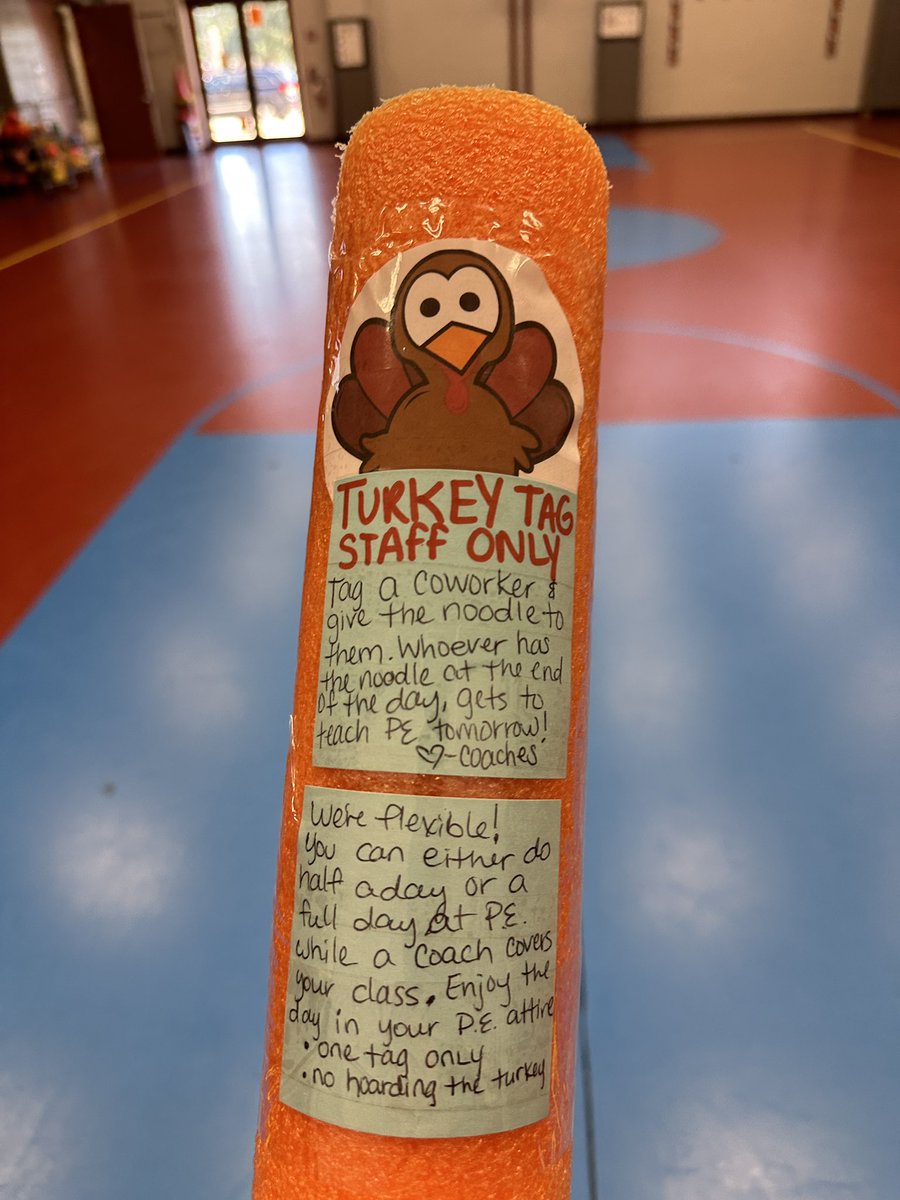 TURKEY TAG
STAFF ONLY
Tag a coworker &
give the noodle to
them. Whoever has
the noodle at the end
of the day, gets to
teach PE tomorrow!
♡-coaches
We're flexible!
You can either do
half a day or a
full day at P.E.
while a coach covers
your class. Enjoy the
day in your P.E. attire
• one tag only
• no hoarding the turkey